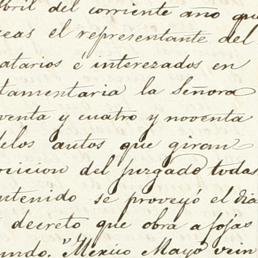 bril del corriente ano que
eas el representante del
atarios é interezados en
tamentaria la Señora
venta y cuatro y noventa
delos autos que giran
oricion del juzgado todas
ntenido se proveyó el dia
decreto que obra a fojas
undo. "Mexico Mayo vein